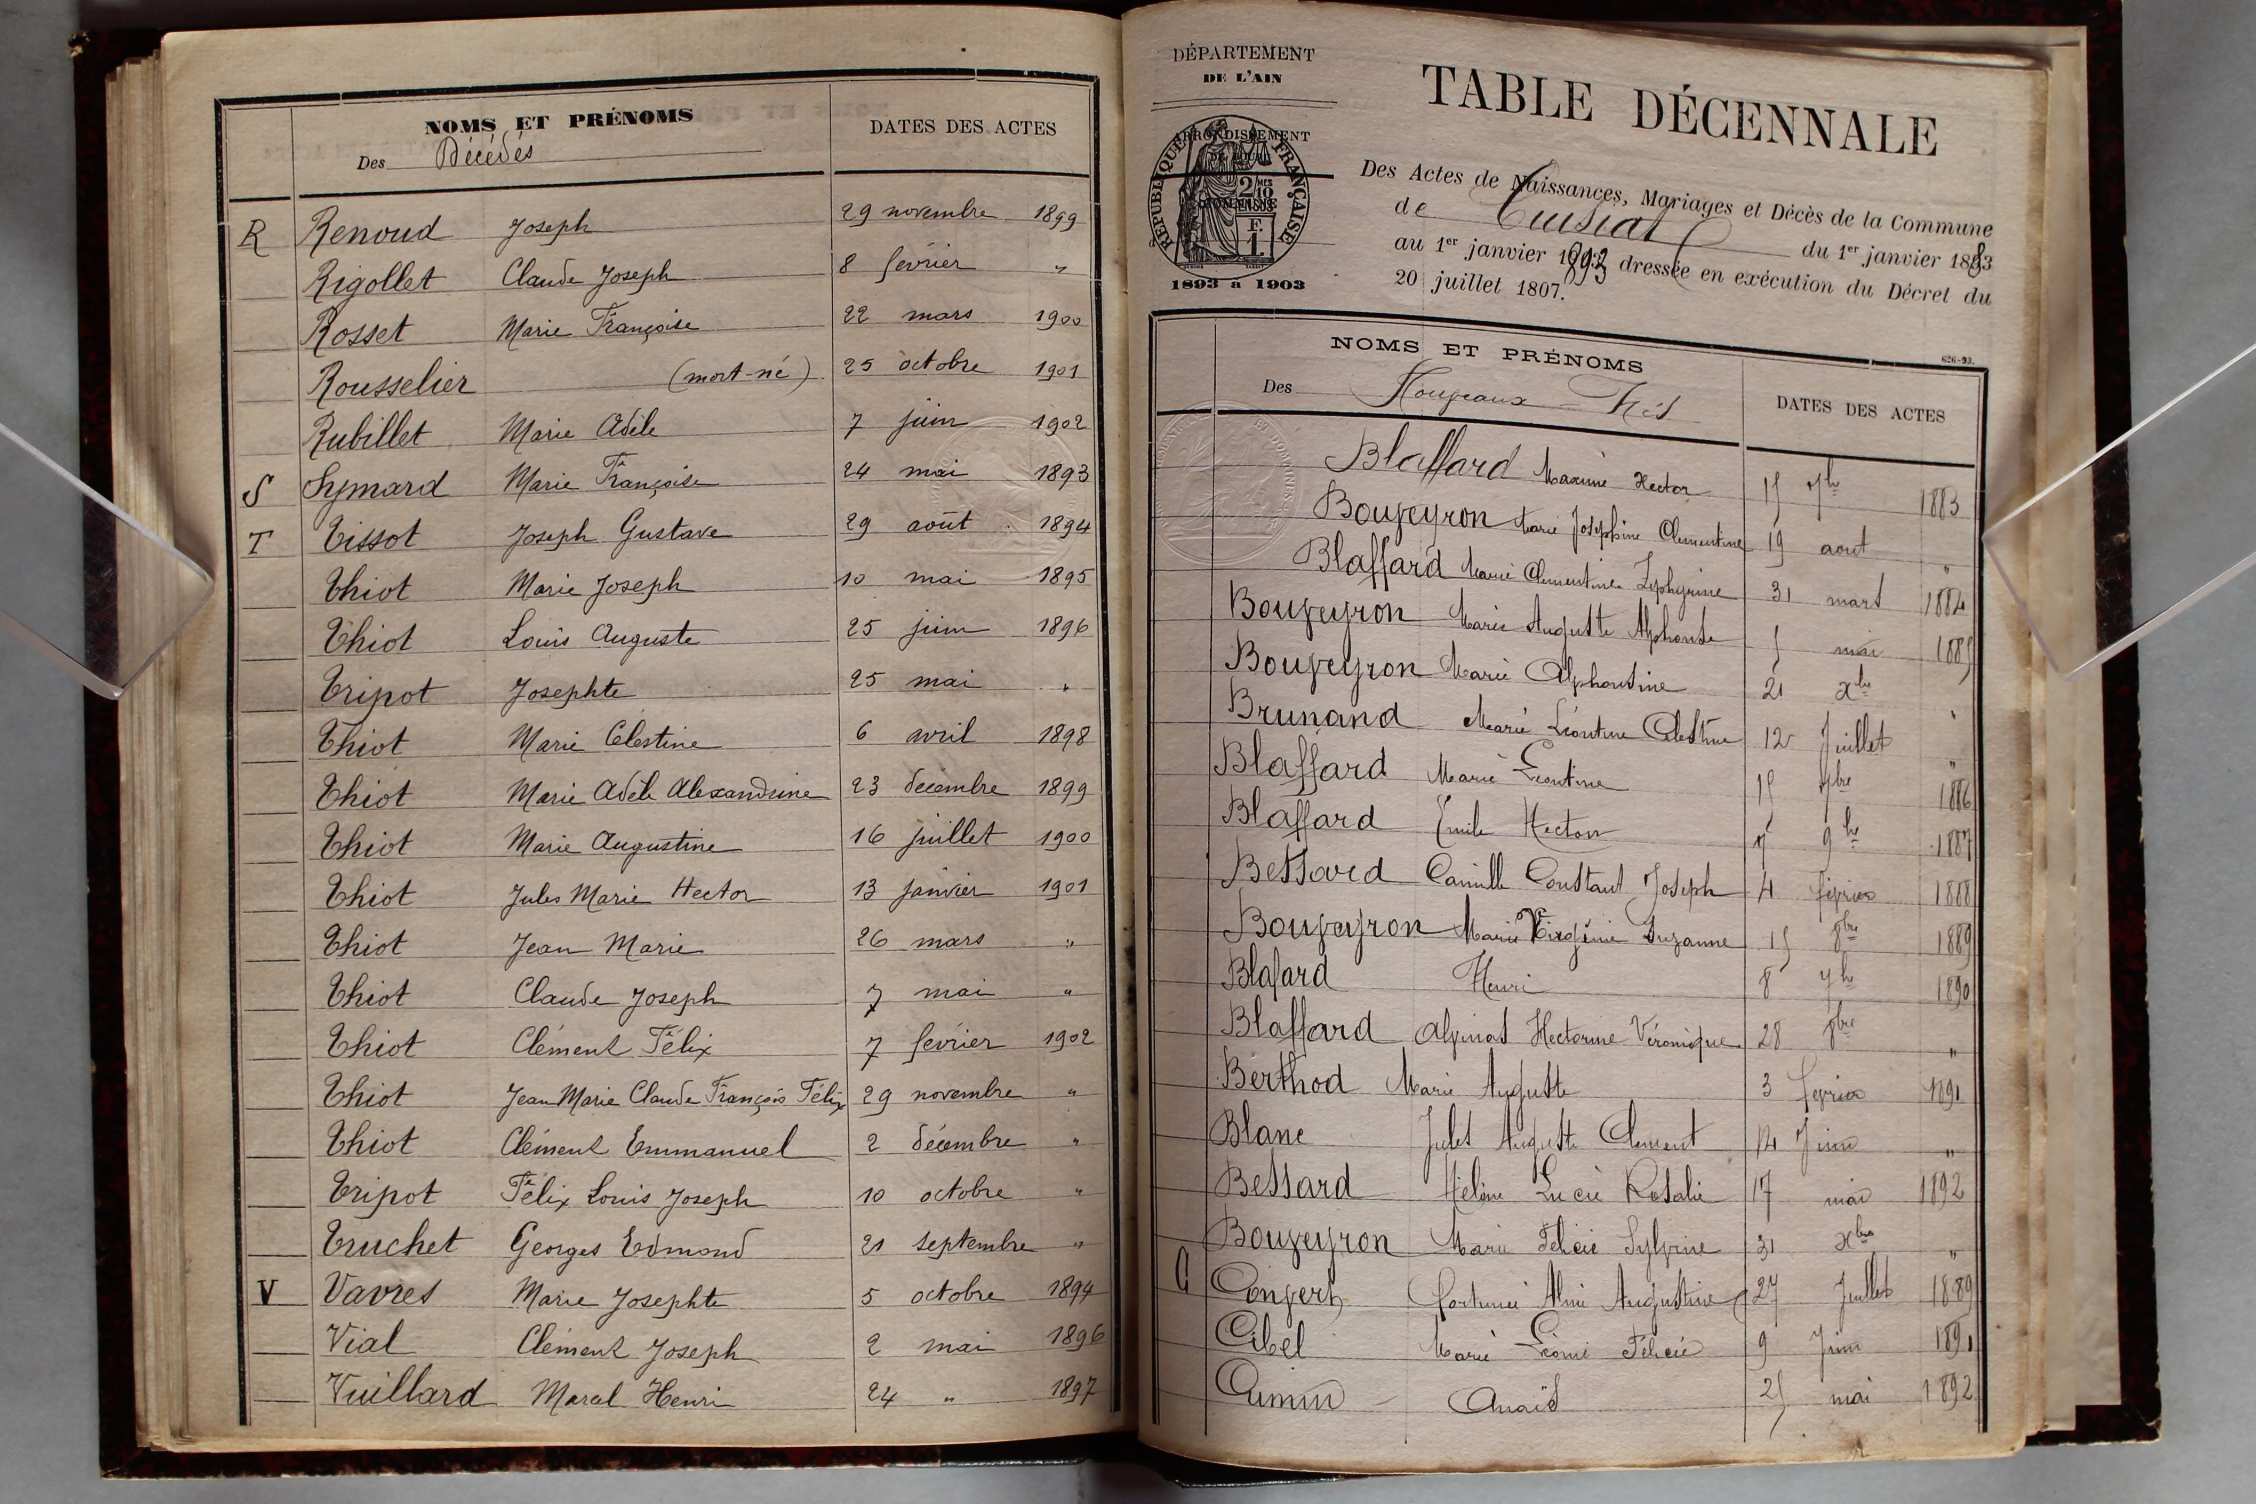 NOMS ET PRÉNOMS
Des Décédés
DATES DES ACTES
R Renoud Joseph 29 novembre 1899
Rigollet Claude Joseph 8 février "
Rosset Marie Françoise 22 mars 1900
Rousselier (mort-né) 25 octobre 1901
Rubillet Marie Adèle 7 juin 1902
S Symard Marie Françoise 24 mai 1893
T Tissot Joseph Gustave 29 août 1894
Thiot Marie Joseph 10 mai 1895
Thiot Louis Auguste 25 juin 1896
Tripot Josephte 25 mai "
Thiot Marie Célestine 6 avril 1898
Thiot Marie Adèle Alexandrine 23 décembre 1899
Thiot Marie Augustine 16 juillet 1900
Thiot Jules Marie Hector 13 janvier 1901
Thiot Jean Marie 26 mars "
Thiot Claude Joseph 7 mai "
Thiot Clément Félix 7 février 1902
Thiot Jean Marie Claude François Félix 29 novembre "
Thiot Clément Emmanuel 2 décembre "
Tripot Félix Louis Joseph 10 octobre "
Truchet Georges Edmond 21 septembre "
V Vavres Marie Josephte 5 octobre 1894
Vial Clément Joseph 2 mai 1896
Vuillard Marcel Henri 24 " 1897
DÉPARTEMENT
DE L'AIN
ARRONDISSEMENT
RÉPUBLIQUE FRANÇAISE
2/10 MES
F. 1
1893 a 1903
TABLE DÉCENNALE
Des Actes de Naissances, Mariages et Décès de la Commune
de Cuisiat du 1er janvier 1883
au 1er janvier 1893 dressée en exécution du Décret du
20 juillet 1807.
626-93.
NOMS ET PRÉNOMS
Des Nouveaux Nés
DATES DES ACTES
Blaffard Maxime Hector 15 7bre 1883
Bouveyron Marie Joséphine Clementine 19 aout "
Blaffard Marie Clementine Zephyrine 31 mars 1884
Bouveyron Marie Auguste Alphonse 5 mai 1885
Bouveyron Marie Alphonsine 21 Xbre "
Brunand Marie Léontine Celestine 12 Juillet "
Blaffard Marie Léontine 15 7bre 1886
Blaffard Emile Hector 7 9bre 1887
Bessard Camille Constant Joseph 4 fevrier 1888
Bouveyron Marie Virginie Suzanne 15 8bre 1889
Blafard Henri 8 7bre 1890
Blaffard Alpinas Hectorine Véronique 28 8bre "
Berthod Marie Auguste 3 fevrier 1891
Blanc Jules Auguste Clement 14 Juin "
Bessard Hélène Lucie Rosalie 17 mai 1892
Bouveyron Marie Félicie Sylvine 31 Xbre "
C Convert Fortunée Aline Augustine 27 Juillet 1889
Cibel Marie Léonie Félicie 9 Juin 1891
Cumin Anaïs 25 mai 1892